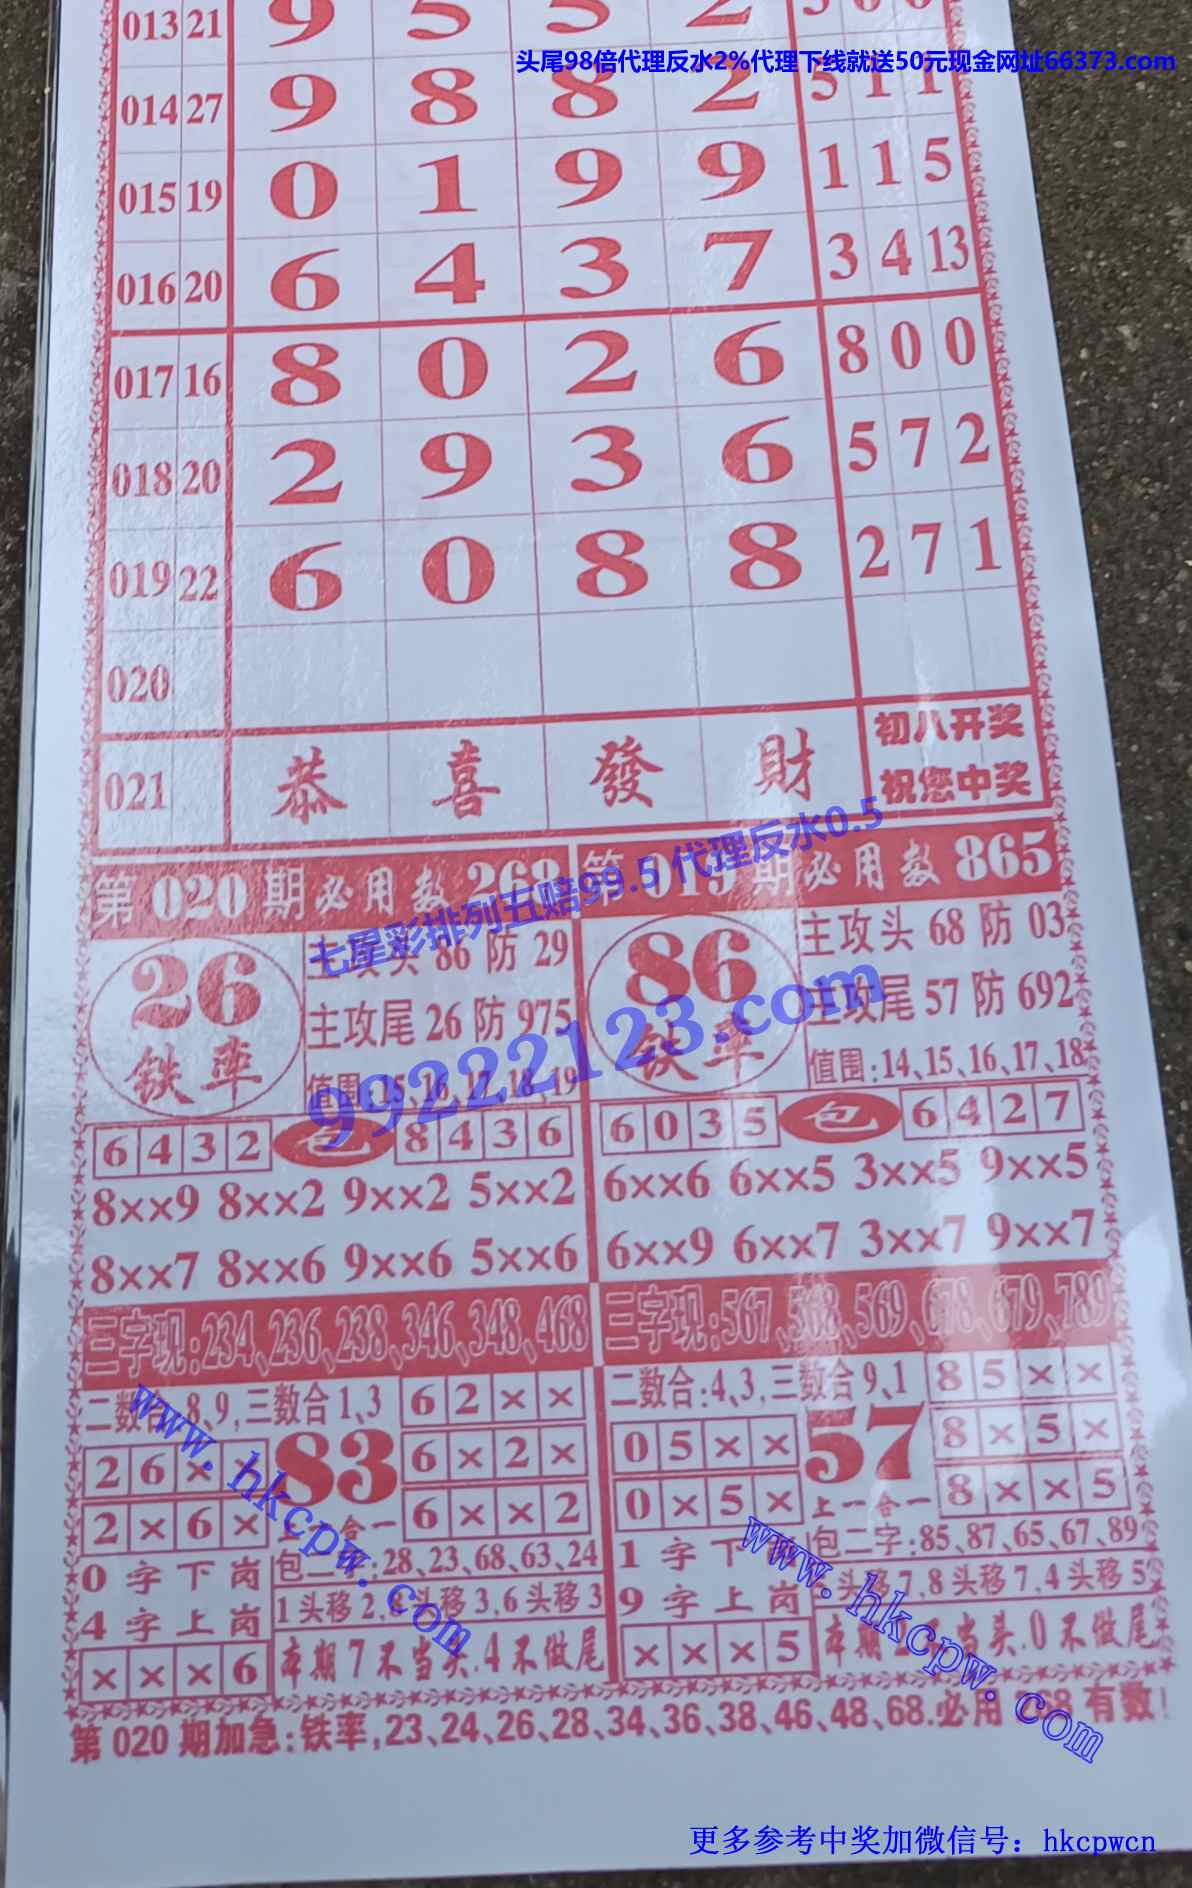 013 21 9 5 5 2
头尾98倍代理反水2%代理下线就送50元现金网址66373.com
014 27 9 8 8 2 5 1 1
015 19 0 1 9 9 1 1 5
016 20 6 4 3 7 3 4 13
017 16 8 0 2 6 8 0 0
018 20 2 9 3 6 5 7 2
019 22 6 0 8 8 2 7 1
020
021 恭 喜 發 財 初八开奖
祝您中奖
七星彩排列五赔99.5 代理反水0.5
99222123.com
第 020 期必用数 268
26
铁率
主攻头 86 防 29
主攻尾 26 防 975
值围:15、16、17、18、19
6 4 3 2 包 8 4 3 6
8××9 8××2 9××2 5××2
8××7 8××6 9××6 5××6
三字现:234、236、238、346、348、468
二数合:8、9,三数合1、3
6 2 × ×
2 6 × × 83 6 × 2 ×
2 × 6 × 上一合一 6 × × 2
0 字 下 岗 包二字:28、23、68、63、24
4 字 上 岗 1头移2、 头移3、6头移3
× × × 6 本期7不当头.4不做尾
第 019 期必用数 865
86
铁率
主攻头 68 防 03
主攻尾 57 防 692
值围:14、15、16、17、18
6 0 3 5 包 6 4 2 7
6××6 6××5 3××5 9××5
6××9 6××7 3××7 9××7
三字现:567、568、569、678、679、789
二数合:4、3,三数合9、1
8 5 × ×
0 5 × × 57 8 × 5 ×
0 × 5 × 上一合一 8 × × 5
1 字 下 岗 包二字:85、87、65、67、89
9 字 上 岗 头移7、8头移7、4头移5
× × × 5 本期2不当头.0不做尾
www.hkcpw.com
www.hkcpw.com
第 020 期加急:铁率,23、24、26、28、34、36、38、46、48、68.必用 268 有数!
更多参考中奖加微信号：hkcpwcn